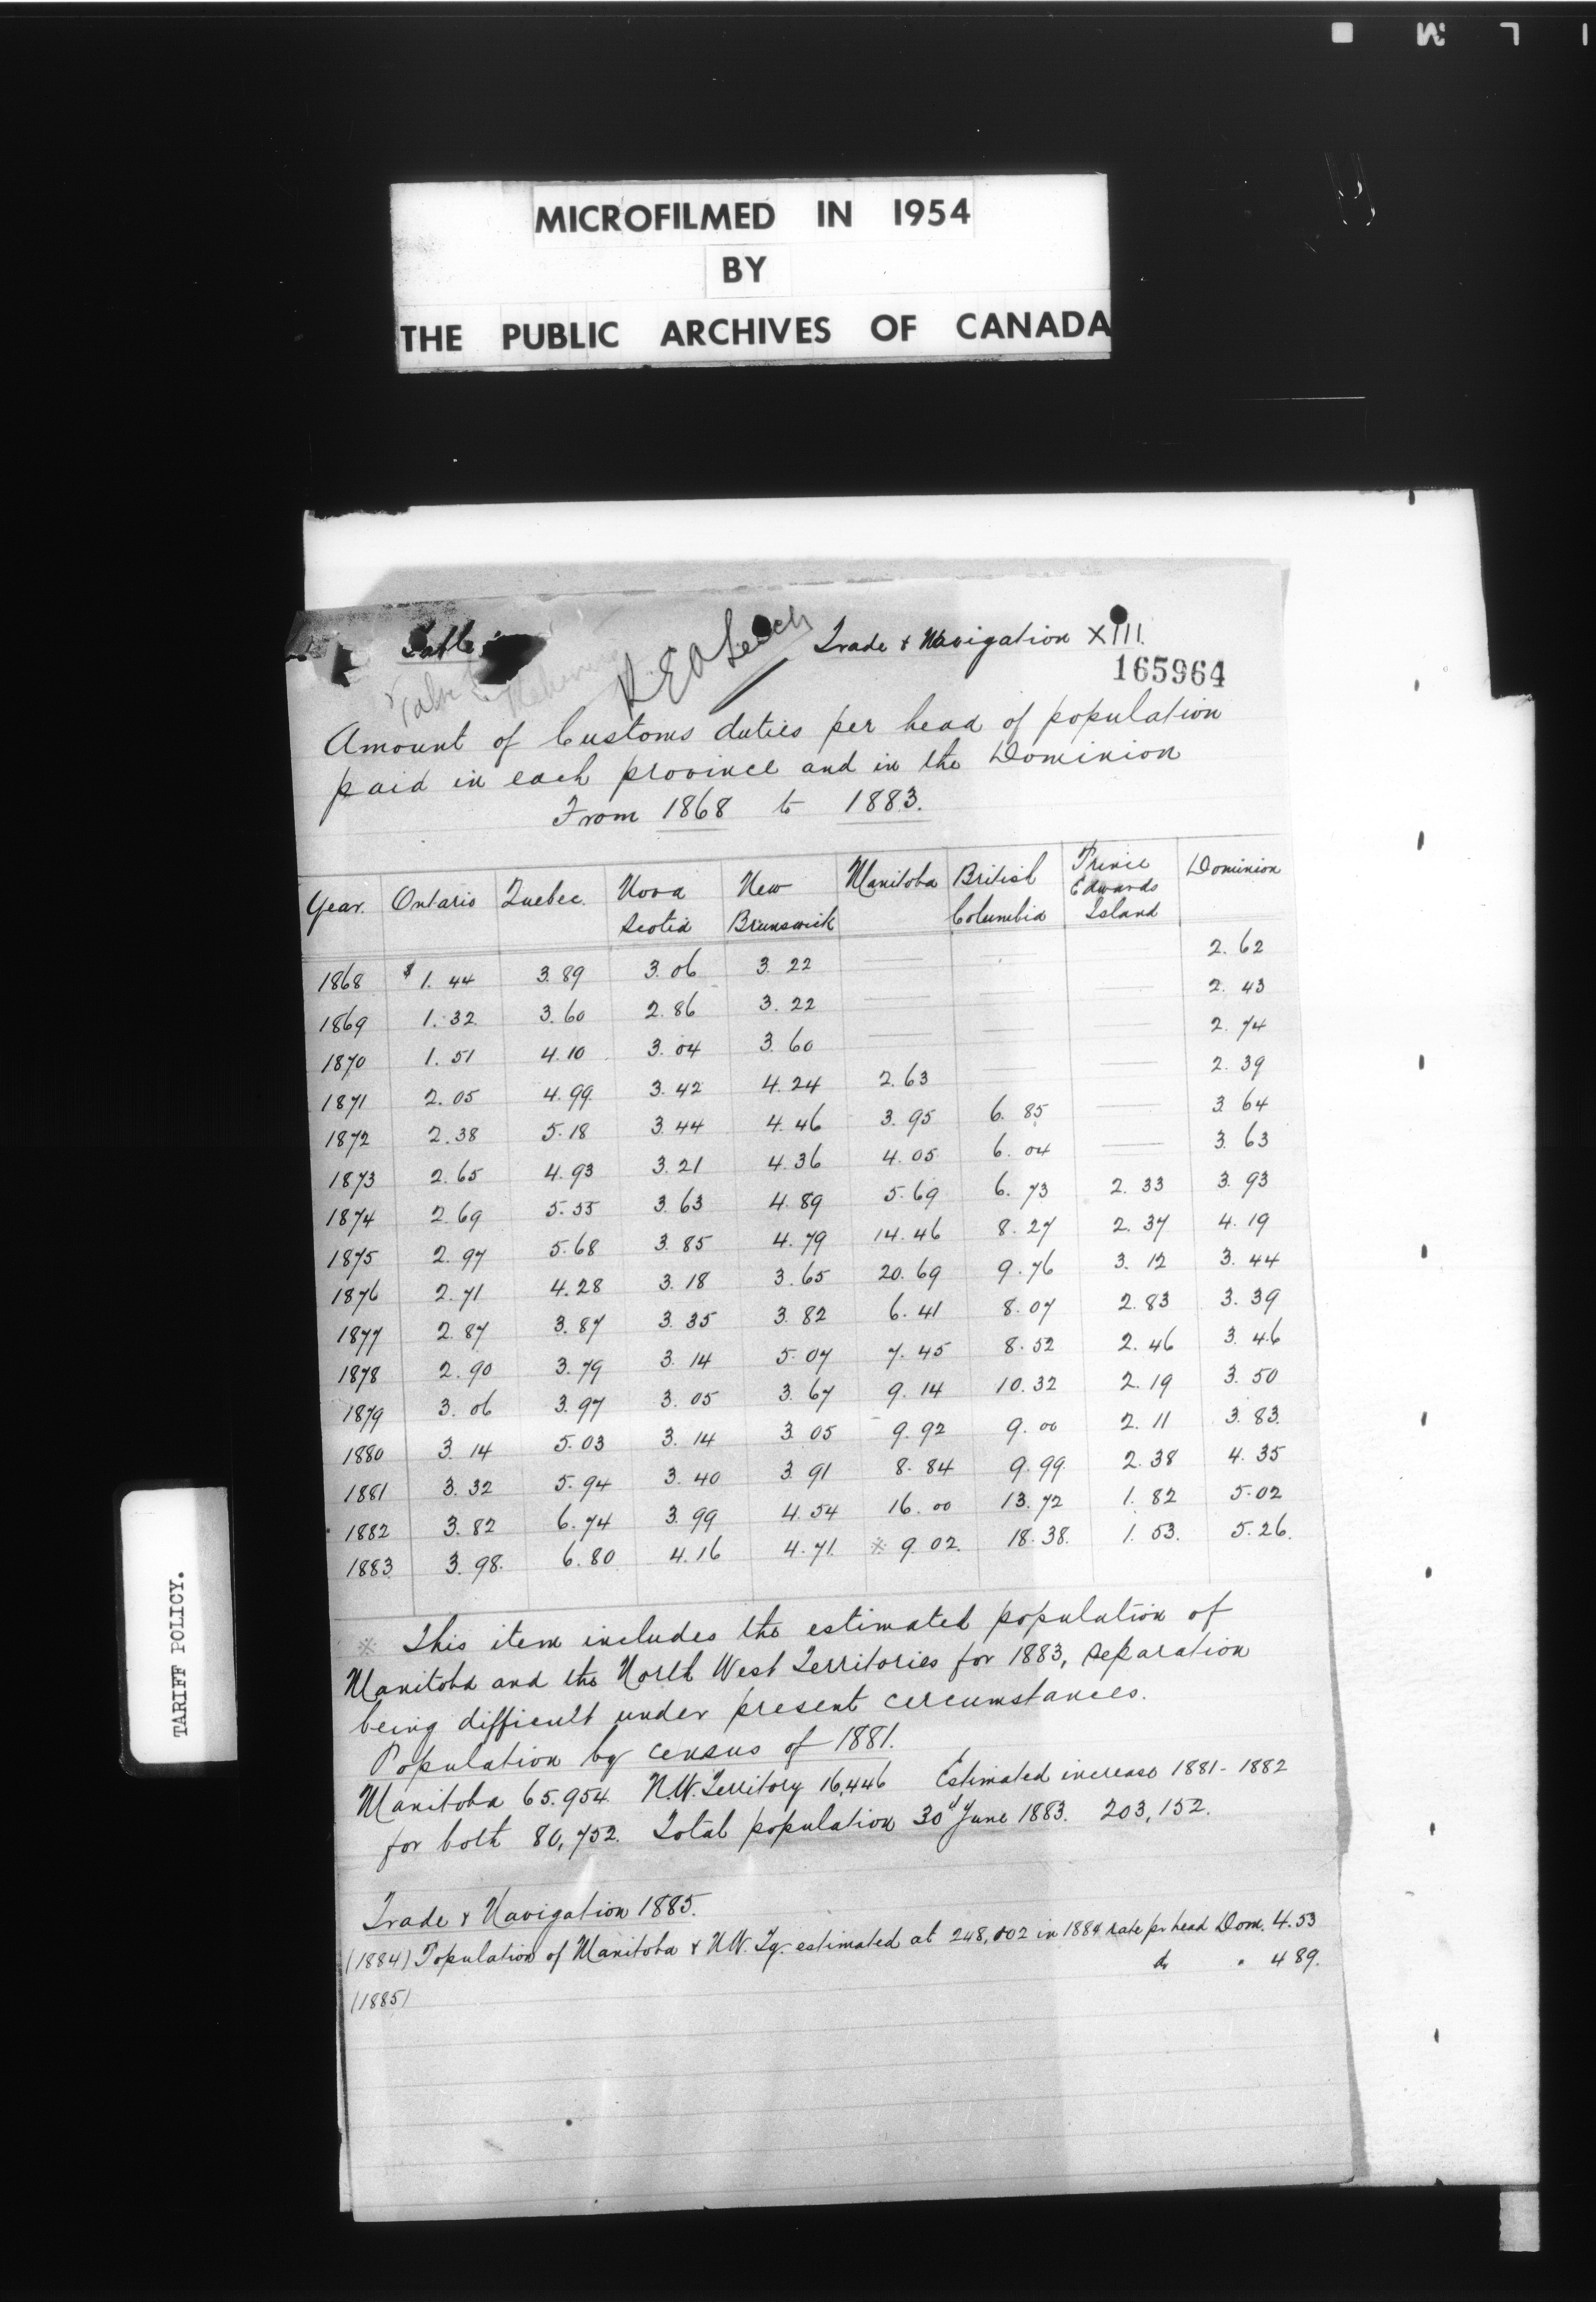 MICROFILMED IN 1954
BY
THE PUBLIC ARCHIVES OF CANADA
Table Trade & Navigation XIII.
165964
Amount of Customs duties per head of population
paid in each province and in the Dominion
From 1868 to 1883.
Year. Ontario Quebec. Nova Scotia New Brunswick Manitoba British Columbia Prince Edwards Island Dominion
1868 $1.44 3.89 3.06 3.22 — — — 2.62
1869 1.32 3.60 2.86 3.22 — — — 2.43
1870 1.51 4.10 3.04 3.60 — — — 2.74
1871 2.05 4.99 3.42 4.24 2.63 — — 2.39
1872 2.38 5.18 3.44 4.46 3.95 6.85 — 3.64
1873 2.65 4.93 3.21 4.36 4.05 6.04 — 3.63
1874 2.69 5.55 3.63 4.89 5.69 6.73 2.33 3.93
1875 2.97 5.68 3.85 4.79 14.46 8.27 2.37 4.19
1876 2.71 4.28 3.18 3.65 20.69 9.76 3.12 3.44
1877 2.87 3.87 3.35 3.82 6.41 8.07 2.83 3.39
1878 2.90 3.79 3.14 5.07 7.45 8.52 2.46 3.46
1879 3.06 3.97 3.05 3.67 9.14 10.32 2.19 3.50
1880 3.14 5.03 3.14 3.05 9.92 9.00 2.11 3.83
1881 3.32 5.94 3.40 3.91 8.84 9.99 2.38 4.35
1882 3.82 6.74 3.99 4.54 16.00 13.72 1.82 5.02
1883 3.98. 6.80 4.16 4.71. ※ 9.02. 18.38. 1.53. 5.26.
※ This item includes the estimated population of
Manitoba and the North West Territories for 1883, separation
being difficult under present circumstances.
Population by census of 1881.
Manitoba 65.954. N.W. Territory 16,446 Estimated increase 1881-1882
for both 80,752. Total population 30th June 1883. 203,152.
Trade & Navigation 1885.
(1884) Population of Manitoba & N.W. Ty. estimated at 248,002 in 1884 rate pr head Dom. 4.53
(1885) do " 4 89.
TARIFF POLICY.